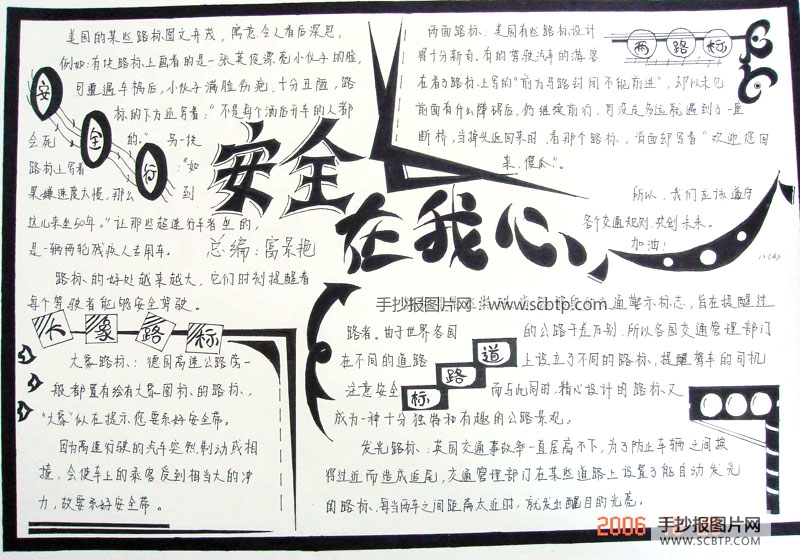 美国的某些路标图文并茂，寓意令人看后深思。
例如：有块路标上画着的是一张英俊漂亮小伙子的脸，
可遭遇车祸后，小伙子满脸伤疤，十分丑陋，路
标的下方还写着：“不是每个酒后开车的人都
会死的。”另一块
路标上写着：“如
果嫌速度太慢，那么到
这儿来坐50年。”让那些超速行车者坐的，
是一辆两轮残疾人专用车。
路标的好处越来越大，它们时刻提醒着
每个驾驶者能够安全驾驶。
安全行
安全
在我心
总编：富景艳
两面路标：美国有些路标设计
得十分新奇，有的驾驶汽车的游客
在看了路标上写的“前方马路封闭不能前进”，却以未见
前面有什么障碍后，仍继续前行，可没走多远就遇到了一座
断桥，当掉头返回某时，看那个路标，背面却写着“欢迎您回
来，傻瓜”。
两路标
所以，我们应该遵守
各个交通规则，共创未来。
加油！
大象路标
大象路标：德国高速公路旁一
般都置有绘有大象图标的路标，
“大象”似在提示您要系好安全带。
因为高速行驶的汽车突然制动或相
撞，会使车上的乘客受到相当大的冲
力，故要系好安全带。
手抄报图片网：www.scbtp.com
通警示标志，旨在提醒过
路者。由于世界各国的公路千差万别，所以各国交通管理部门
在不同的道路上设立了不同的路标，提醒驾车的司机
注意安全，而与此同时，精心设计的路标又
成为一种十分独特和有趣的公路景观。
道路标
发光路标：英国交通事故率一直居高不下，为了防止车辆之间挨
得过近而造成追尾，交通管理部门在某些道路上设置了能自动发光
的路标，每当两车之间距离太近时，就发出醒目的光亮。
2006
手抄报图片网
WWW.SCBTP.COM